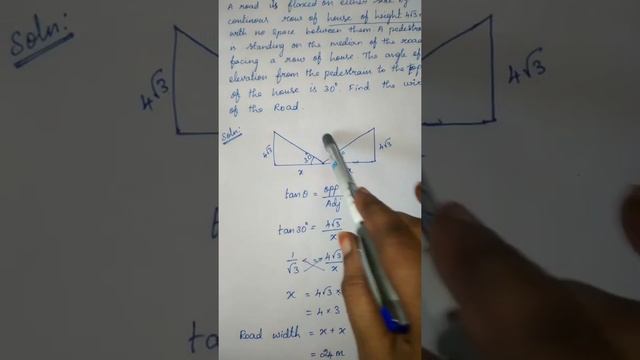 A road is flaxed on either side by
continous row of house of height 4√3 m
with no space between them A pedestra
n standing on the median of the road
facing a row of house. The angle of
elevation from the pedestrain to the top
of the house is 30°. Find the wid
of the Road.
Soln:
4√3
30°
4√3
x
x
tanθ = opp/Adj
tan30° = 4√3/x
1/√3 = 4√3/x
x = 4√3 ×
= 4 × 3
Road width = x + x
= 24 m
Soln:
4√3
4√3
ta